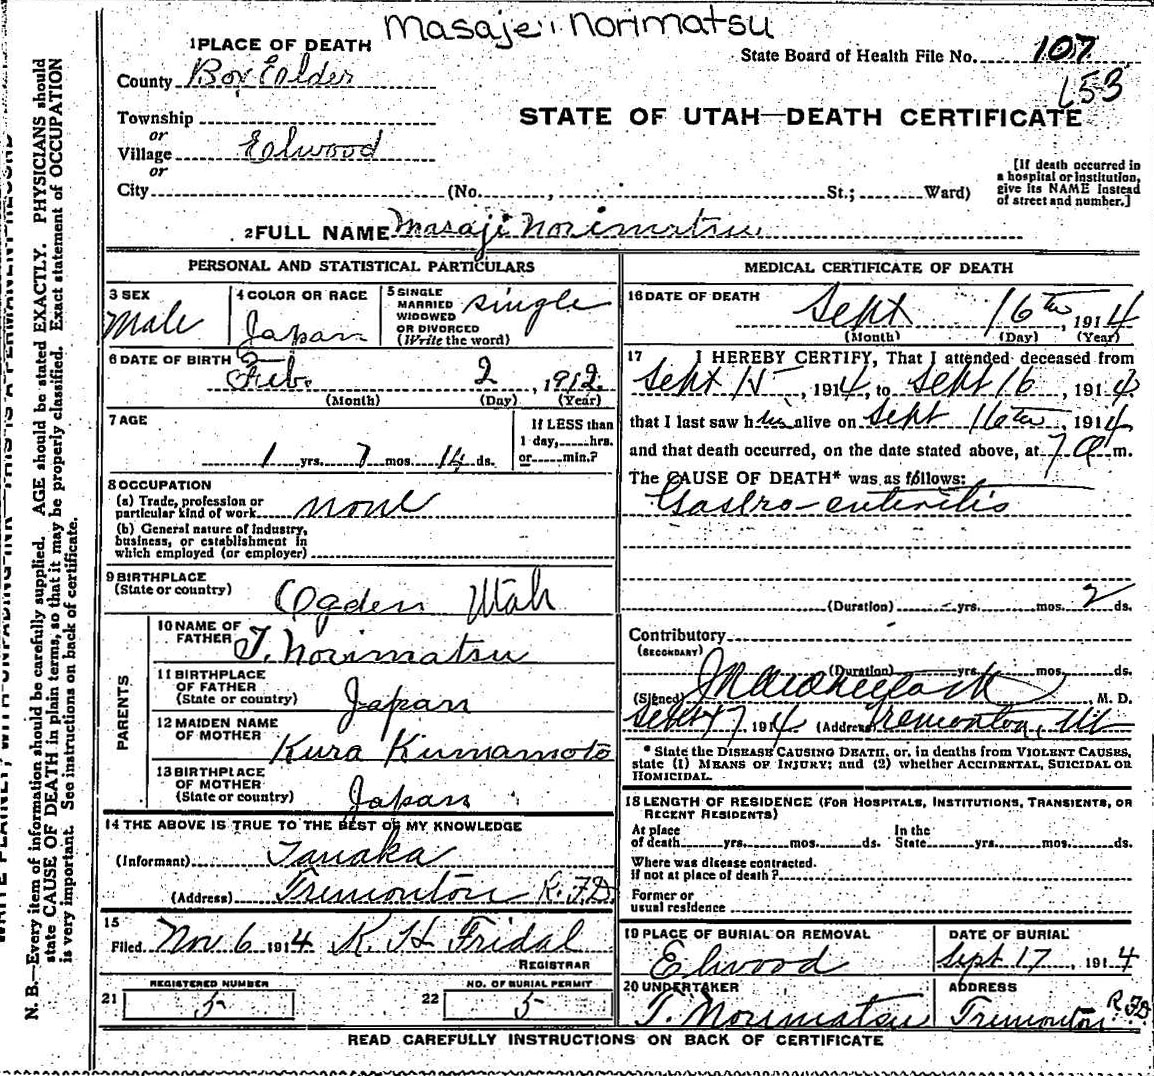 Masaji Norimatsu
1 PLACE OF DEATH
State Board of Health File No. 107
County Box Elder
153
Township
STATE OF UTAH—DEATH CERTIFICATE
or
Village Elwood
or
City (No. , St.; Ward)
[If death occurred in a hospital or institution, give its NAME instead of street and number.]
2 FULL NAME Masaji Norimatsu
PERSONAL AND STATISTICAL PARTICULARS
3 SEX
Male
4 COLOR OR RACE
Japan
5 SINGLE MARRIED WIDOWED OR DIVORCED (Write the word)
single
6 DATE OF BIRTH
Feb. 2, 1912
(Month) (Day) (Year)
7 AGE
If LESS than
1 day, hrs.
or min.?
1 yrs. 7 mos. 14 ds.
8 OCCUPATION
(a) Trade, profession or
particular kind of work none
(b) General nature of industry,
business, or establishment in
which employed (or employer)
9 BIRTHPLACE
(State or country) Ogden Utah
PARENTS
10 NAME OF
FATHER T. Norimatsu
11 BIRTHPLACE
OF FATHER
(State or country) Japan
12 MAIDEN NAME
OF MOTHER Kura Kumamoto
13 BIRTHPLACE
OF MOTHER
(State or country) Japan
14 THE ABOVE IS TRUE TO THE BEST OF MY KNOWLEDGE
(Informant) Tanaka
(Address) Tremonton R.F.D.
15
Filed Nov 6 1914 K. H Fridal
REGISTRAR
REGISTERED NUMBER
21 5
NO. OF BURIAL PERMIT
22 5
MEDICAL CERTIFICATE OF DEATH
16 DATE OF DEATH
Sept 16th, 1914
(Month) (Day) (Year)
17 I HEREBY CERTIFY, That I attended deceased from
Sept 15, 1914, to Sept 16, 1914
that I last saw him alive on Sept 16th, 1914
and that death occurred, on the date stated above, at 7 a m.
The CAUSE OF DEATH* was as follows:
Gastro-enteritis
(Duration) - yrs. mos. 2 ds.
Contributory
(SECONDARY)
(Duration) yrs. mos. ds.
(Signed) M. D.
Sept 17, 1914 (Address) Tremonton, Ut
* State the DISEASE CAUSING DEATH, or, in deaths from VIOLENT CAUSES,
state (1) MEANS OF INJURY; and (2) whether ACCIDENTAL, SUICIDAL OR
HOMICIDAL.
18 LENGTH OF RESIDENCE (FOR HOSPITALS, INSTITUTIONS, TRANSIENTS, OR
RECENT RESIDENTS)
At place In the
of death yrs. mos. ds. State yrs. mos. ds.
Where was disease contracted.
if not at place of death?
Former or
usual residence
19 PLACE OF BURIAL OR REMOVAL
Elwood
DATE OF BURIAL
Sept 17, 1914
20 UNDERTAKER
T. Norimatsu
ADDRESS
Tremonton R.F.D
READ CAREFULLY INSTRUCTIONS ON BACK OF CERTIFICATE
N. B.—Every item of information should be carefully supplied. AGE should be stated EXACTLY. PHYSICIANS should
state CAUSE OF DEATH in plain terms, so that it may be properly classified. Exact statement of OCCUPATION
is very important. See instructions on back of certificate.